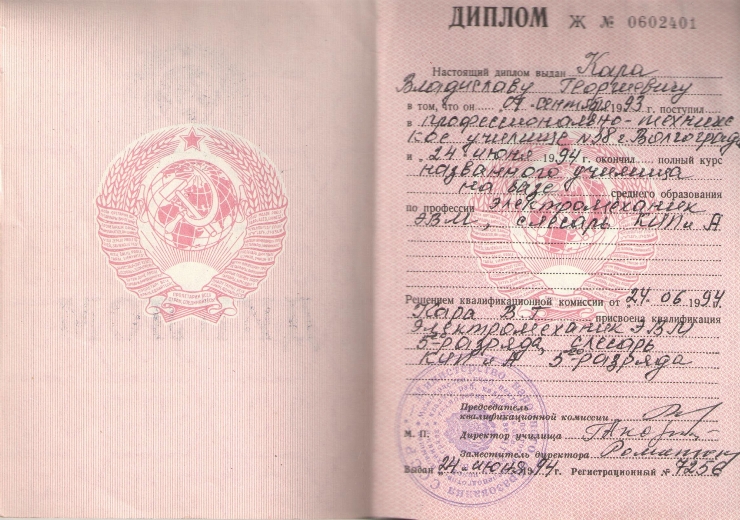 ДИПЛОМ Ж № 0602401
Настоящий диплом выдан Кара
Владиславу Георгиевичу
в том, что он 01 сентября 1993 г. поступил
в профессионально-техничес
кое училище №38 г. Волгограда
и 24 июня 1994 г. окончил полный курс
названного училища
на базе среднего образования
по профессии электромеханик
ЭВМ, слесарь КИП и А
Решением квалификационной комиссии от 24.06.1994 г.
Кара В Г присвоена квалификация
Электромеханик ЭВМ
5 разряда, слесарь
КИП и А 5 разряда
Председатель
квалификационной комиссии
М. П. Директор училища
Заместитель директора
Выдан 24 июня 1994 г. Регистрационный №